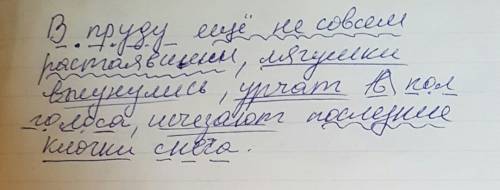 В пруду ещё не совсем
растаявшем, лягушки
выснулись, урчат в пол
голоса, исчезают последние
клочки снега.